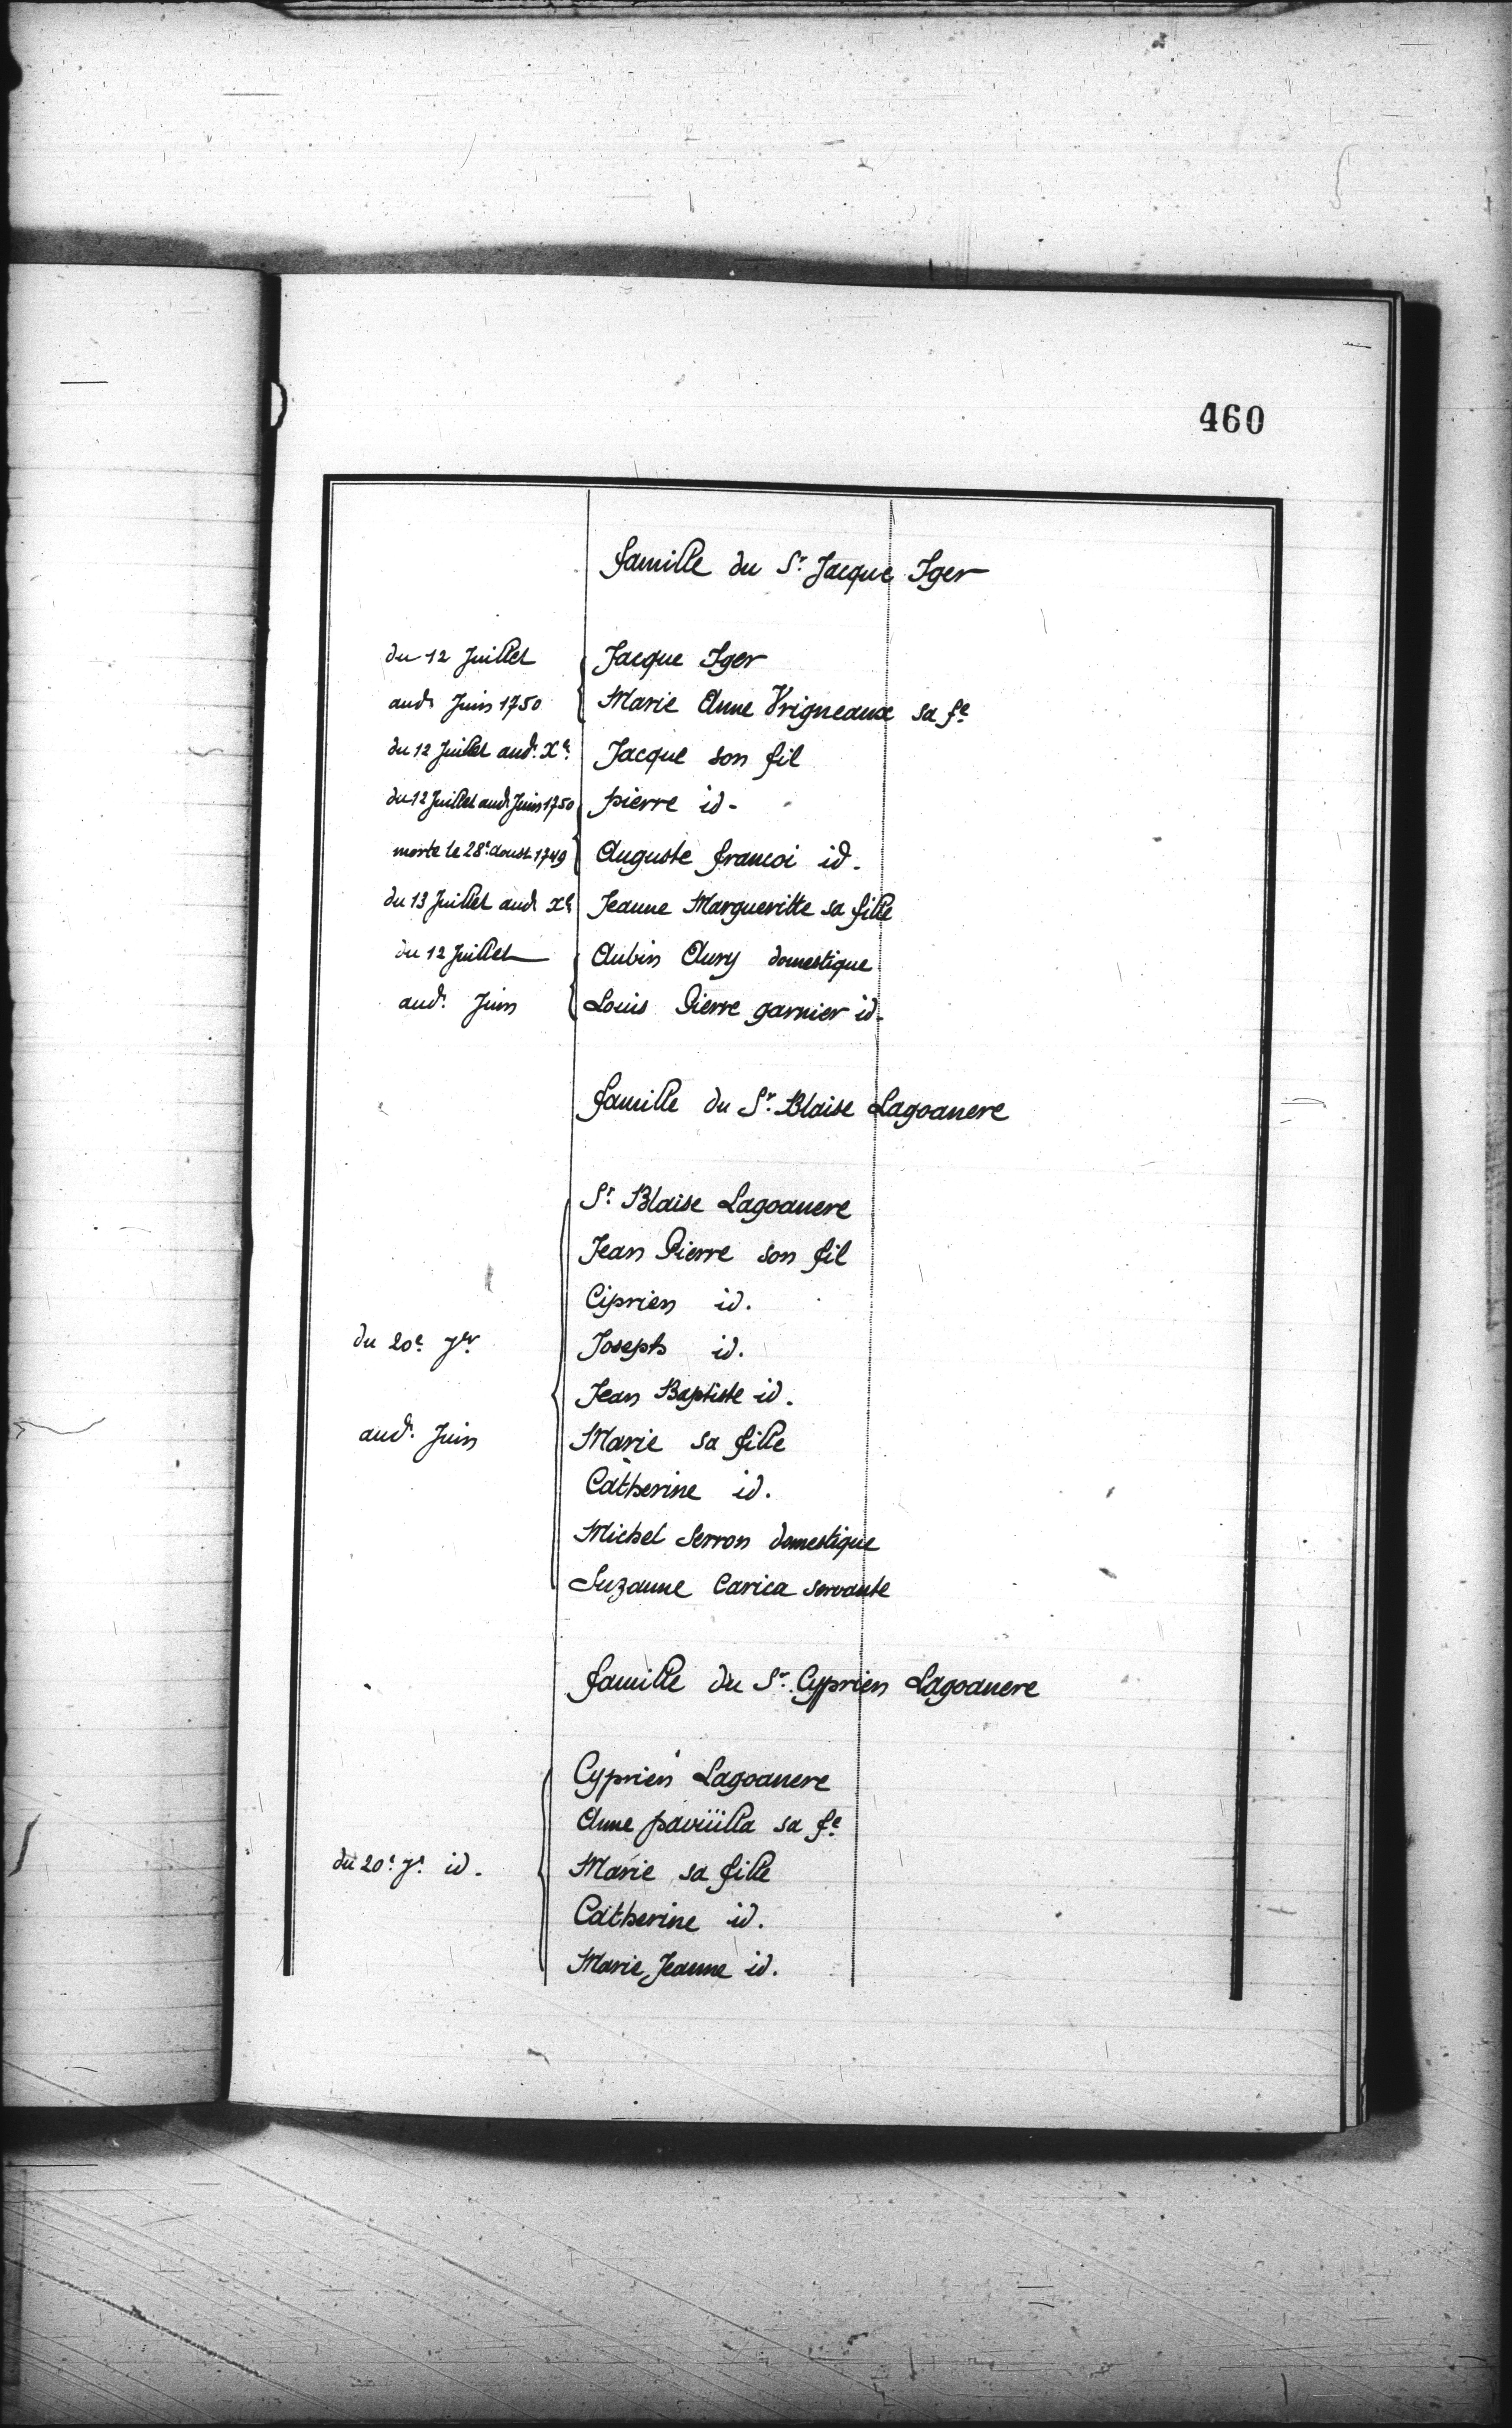 460
famille du Sr. Jacque Iger
du 12 Juillet Jacque Iger
aud. Juin 1750 Marie Anne Vrigneaux sa fe.
du 12 Juillet aud. Xe. Jacque son fil
du 12 Juillet aud. Juin 1750 pierre id.
morte le 28e. doust 1749 Auguste francoi id.
du 13 Juillet aud. Xe. Jeanne Margueritte sa fille
du 12 Juillet Aubin Aury domestique
aud. Juin Louis Pierre garnier id.
famille du Sr. Blaise Lagoanere
Sr. Blaise Lagoanere
Jean Pierre son fil
Ciprien id.
du 20e. 7er. Joseph id.
Jean Baptiste id.
aud. Juin Marie sa fille
Catherine id.
Michel Serron domestique
Suzanne Carica servante
famille du Sr. Cyprien Lagoanere
Cyprien Lagoanere
Anne sa fe.
du 20e. 7e. id. Marie sa fille
Catherine id.
Marie Jeanne id.